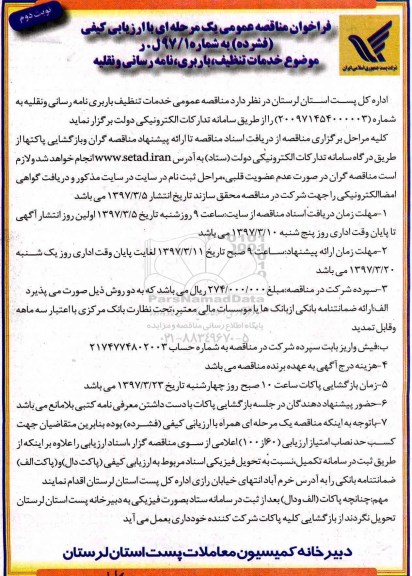 نوبت دوم
فراخوان مناقصه عمومی یک مرحله ای با ارزیابی کیفی
(فشرده) به شماره ۹۷/۱ ل.ر
موضوع خدمات تنظیف، باربری، نامه رسانی و نقلیه
شرکت پست جمهوری اسلامی ایران
اداره کل پست استان لرستان در نظر دارد مناقصه عمومی خدمات تنظیف باربری نامه رسانی ونقلیه به
شماره (۲۰۰۹۷۱۴۵۴۰۰۰۰۰۳) را از طریق سامانه تدارکات الکترونیکی دولت برگزار نماید
کلیه مراحل برگزاری مناقصه از دریافت اسناد مناقصه تا ارائه پیشنهاد مناقصه گران وبازگشایی پاکتها از
طریق درگاه سامانه تدارکات الکترونیکی دولت (ستاد) به آدرس www.setad.iran انجام خواهد شد ولازم
است مناقصه گران در صورت عدم عضویت قلبی، مراحل ثبت نام در سایت در سایت مذکور و دریافت گواهی
امضا الکترونیکی را جهت شرکت در مناقصه محقق سازند تاریخ انتشار ۱۳۹۷/۳/۵ می باشد
۱-مهلت زمان دریافت اسناد مناقصه از سایت، ساعت ۹ روز شنبه تاریخ ۱۳۹۷/۳/۵ اولین روز انتشار آگهی
تا پایان وقت اداری روز پنج شنبه ۱۳۹۷/۳/۱۰ می باشد
۲-مهلت زمان ارائه پیشنهاد: ساعت ۹ صبح تاریخ ۱۳۹۷/۳/۱۱ لغایت پایان وقت اداری روز یک شنبه
۱۳۹۷/۳/۲۰ می باشد
۳-سپرده شرکت در مناقصه: مبلغ ۲۷۴/۰۰۰/۰۰۰ ریال می باشد که به دو روش ذیل صورت می پذیرد
الف: ارائه ضمانتنامه بانکی از بانک ها یا موسسات مالی معتبر، تحت نظارت بانک مرکزی با اعتبار سه ماهه
وقابل تمدید
ب: فیش واریز بابت سپرده شرکت در مناقصه به شماره حساب ۲۱۷۴۷۷۴۸۰۲۰۰۳
۴-هزینه درج آگهی به عهده برنده مناقصه می باشد
۵-زمان بازگشایی پاکات ساعت ۱۰ صبح روز چهارشنبه تاریخ ۱۳۹۷/۳/۲۳ می باشد
۶-حضور پیشنهاد دهندگان در جلسه بازگشایی پاکات با دست داشتن معرفی نامه کتبی بلامانع می باشد
۷-باتوجه به اینکه مناقصه یک مرحله ای همراه با ارزیابی کیفی (فشرده) بوده بنابرین متقاضیان جهت
کسب حد نصاب امتیاز ارزیابی (۶۰ از ۱۰۰) اعلامی از سوی مناقصه گزار، باسناد ارزیابی را علاوه بر اینکه از
طریق ثبت در سامانه تکمیل، نسبت به تحویل فیزیکی اسناد مربوط به ارزیابی کیفی (پاکت دال) و (پاکت الف)
ضمانتنامه بانکی را به آدرس خرم آباد انتهای خیابان رازی اداره کل پست استان لرستان اقدام نمایند
مهم: چنانچه پاکات (الف و دال) بعد از ثبت در سامانه ستاد بصورت فیزیکی به دبیرخانه پست استان لرستان
تحویل نگردند از بازگشایی کلیه پاکات شرکت کننده خودداری بعمل می آید
دبیرخانه کمیسیون معاملات پست استان لرستان
ParsNamadData
پایگاه اطلاع رسانی مناقصه و مزایده
۰۲۱-۸۸۳۴۹۶۷۰-۵